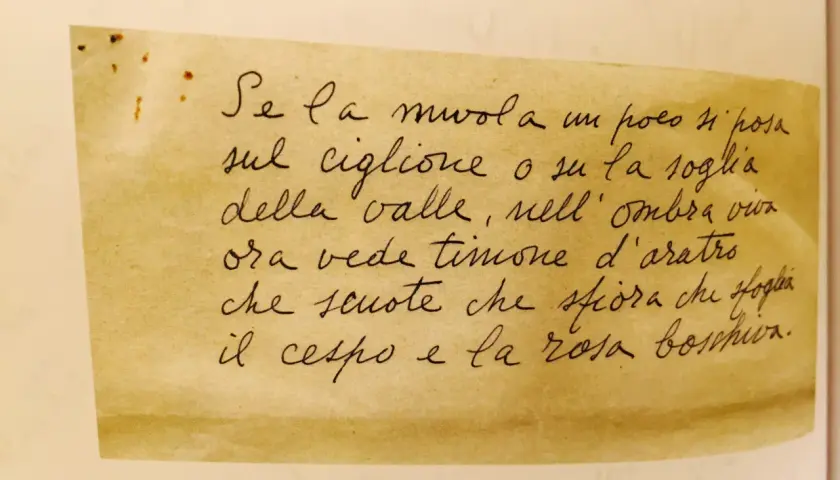 Se la nuvola un poco si posa
sul ciglione o su la soglia
della valle, nell'ombra viva
ora vede timone d'aratro
che scuote che sfiora che sfoglia
il cespo e la rosa boschiva.